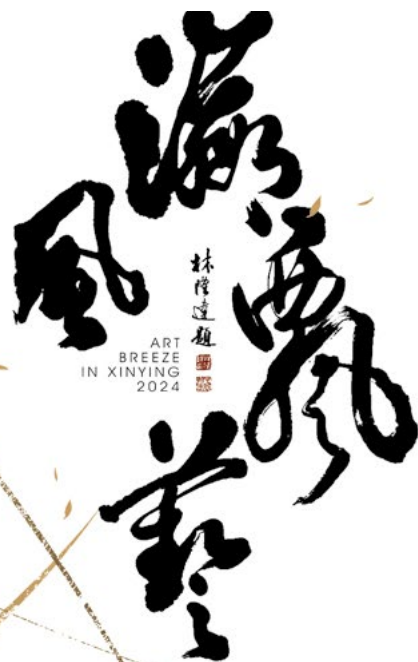 瀛
飄
藝
風
林隆達題
ART
BREEZE
IN XINYING
2024